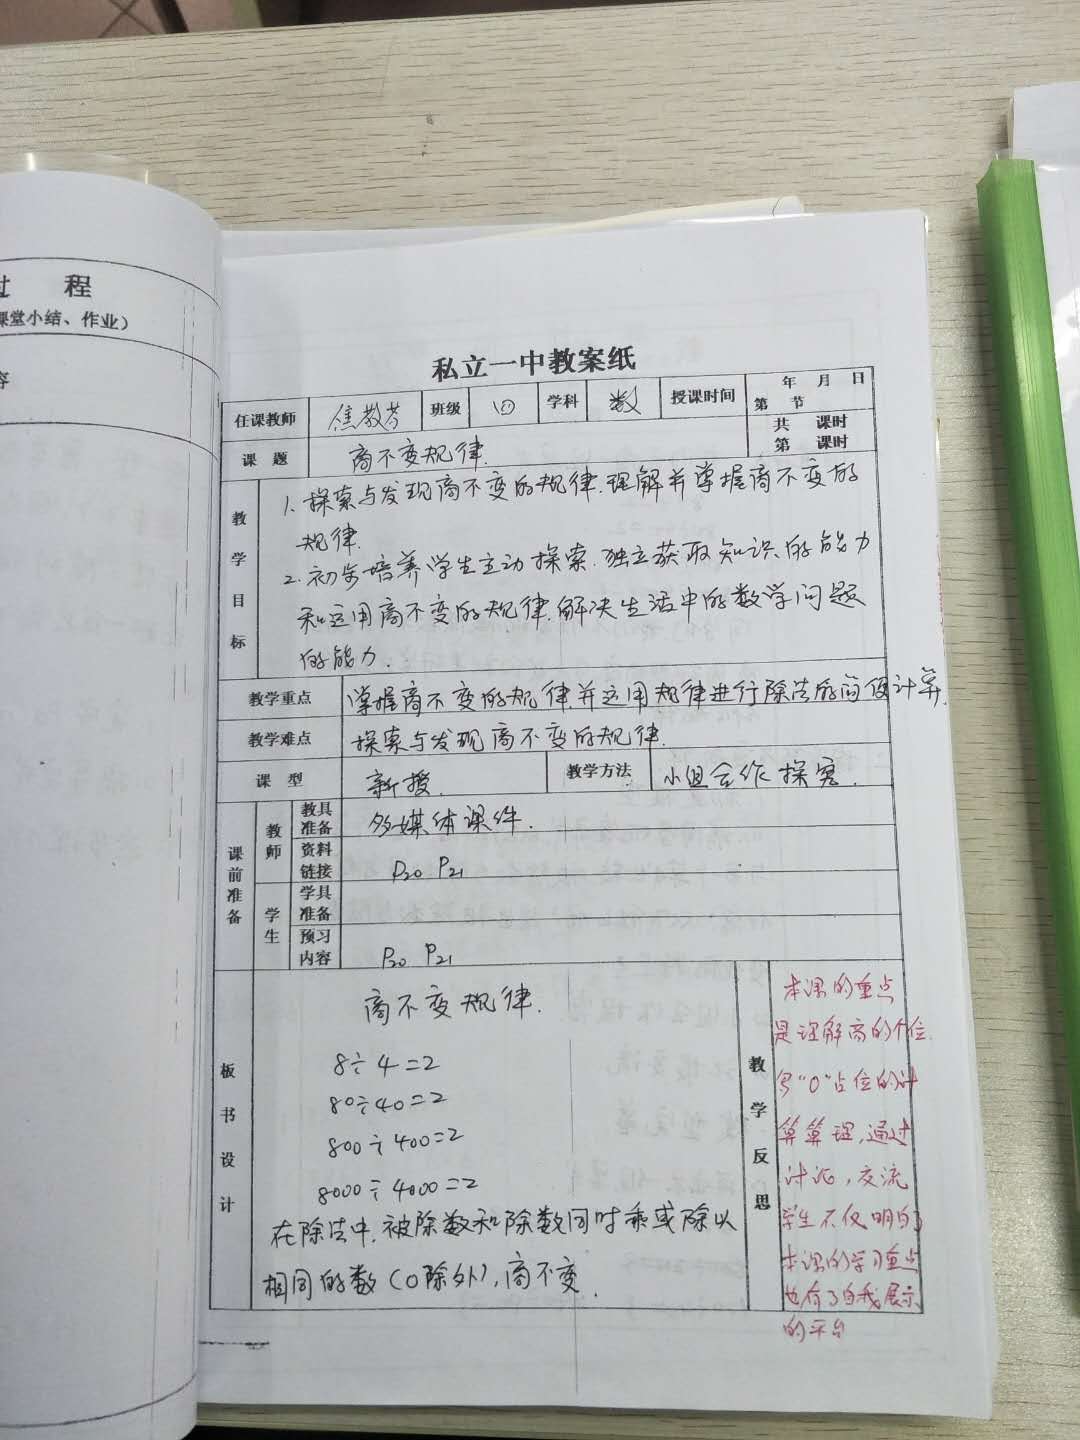 过 程
课堂小结、作业)
容
私立一中教案纸
任课教师 焦教芳 班级 四 学科 数 授课时间 年 月 日
第 节
课 题 商不变规律. 共 课时
第 课时
教学目标
1. 探索与发现商不变的规律.理解并掌握商不变的
规律.
2. 初步培养学生主动探索.独立获取知识的能力
和运用商不变的规律.解决生活中的数学问题
的能力.
教学重点 掌握商不变的规律.并运用规律进行除法的简便计算.
教学难点 探索与发现商不变的规律.
课 型 新授. 教学方法 小组合作探究.
课前准备
教师 教具准备 多媒体课件.
资料链接 P20 P21
学生 学具准备
预习内容 P20 P21
板书设计
商不变规律.
8÷4=2
80÷40=2
800÷400=2
8000÷4000=2
在除法中.被除数和除数同时乘或除以
相同的数(0除外),商不变.
教学反思
本课的重点
是理解商的个位.
写“0”占位的计
算算理,通过
讨论,交流
学生不仅明白了
本课的学习重点
也有了自我展示
的平台